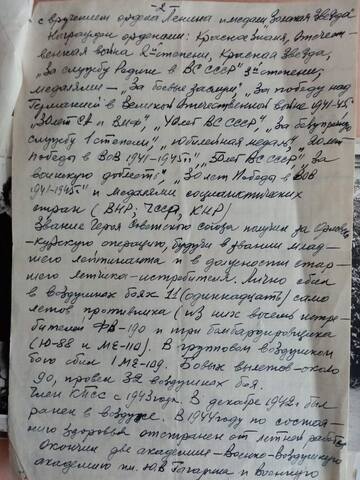 -2-
с вручением ордена Ленина и медали Золотая Звезда
Награжден орденами: Красное Знамя, Отечест-
венная война 2ой степени, Красная Звезда,
„За службу Родине в ВС СССР" 3й степени;
медалями - „За боевые заслуги", „За победу над
Германией в Великой Отечественной войне 1941-45г.
„30 лет СА и ВМФ", „40 лет ВС СССР", „За безупречную
службу 1 степени", юбилейная медаль „20 лет
Победы в ВОВ 1941-1945гг", „50 лет ВС СССР", „За
воинскую доблесть", „30 лет Победы в ВОВ
1941-1945г" и медалями социалистических
стран (ВНР, ЧССР, КНР)
Звание Героя Советского союза получил за Орловско-
Курскую операцию, будучи в звании млад-
шего лейтенанта и в должности стар-
шего летчика-истребителя. Лично сбил
в воздушных боях 11 (одиннадцать) само
летов противника (из них восемь истре-
бителей ФВ-190 и три бомбардировщика
(Ю-88 и МЕ-110). В групповом воздушном
бою сбил 1 МЕ-109. Боевых вылетов - около
90, провел 32 воздушных боя.
Член КПСС с 1943 года. В декабре 1942г. был
ранен в воздухе. В 1944 году по состоя-
нию здоровья отстранен от летной работы
Окончил две академии - Военно-воздушную
академию им. Ю.А Гагарина и Военную